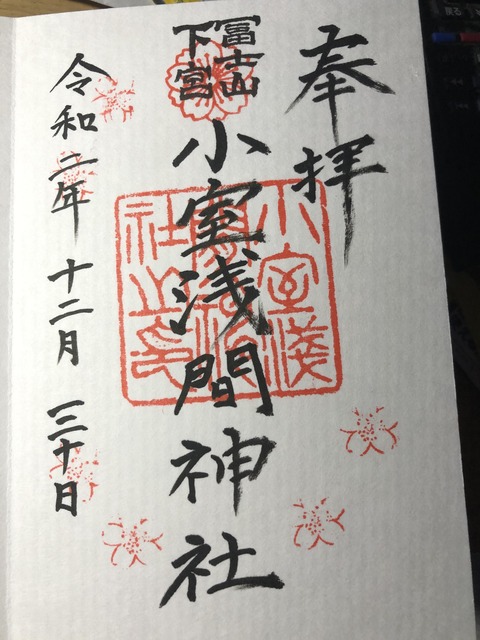 奉拝
冨士山
下宮
小室浅間神社
令和二年 十二月 三十日
小室淺
社之印